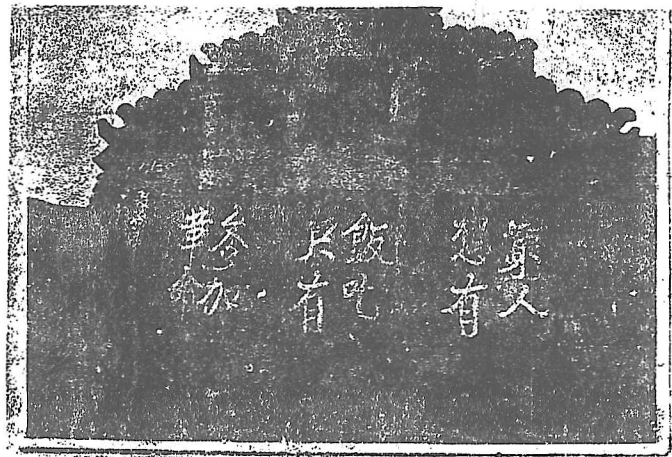 窮人
想有
飯吃
只有
參加
革命